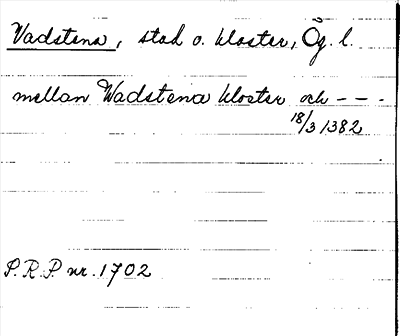 Vadstena, stad o. kloster, Ög. l.
mellan Wadstena kloster och - - -
18/3 1382
P.R.P nr. 1702